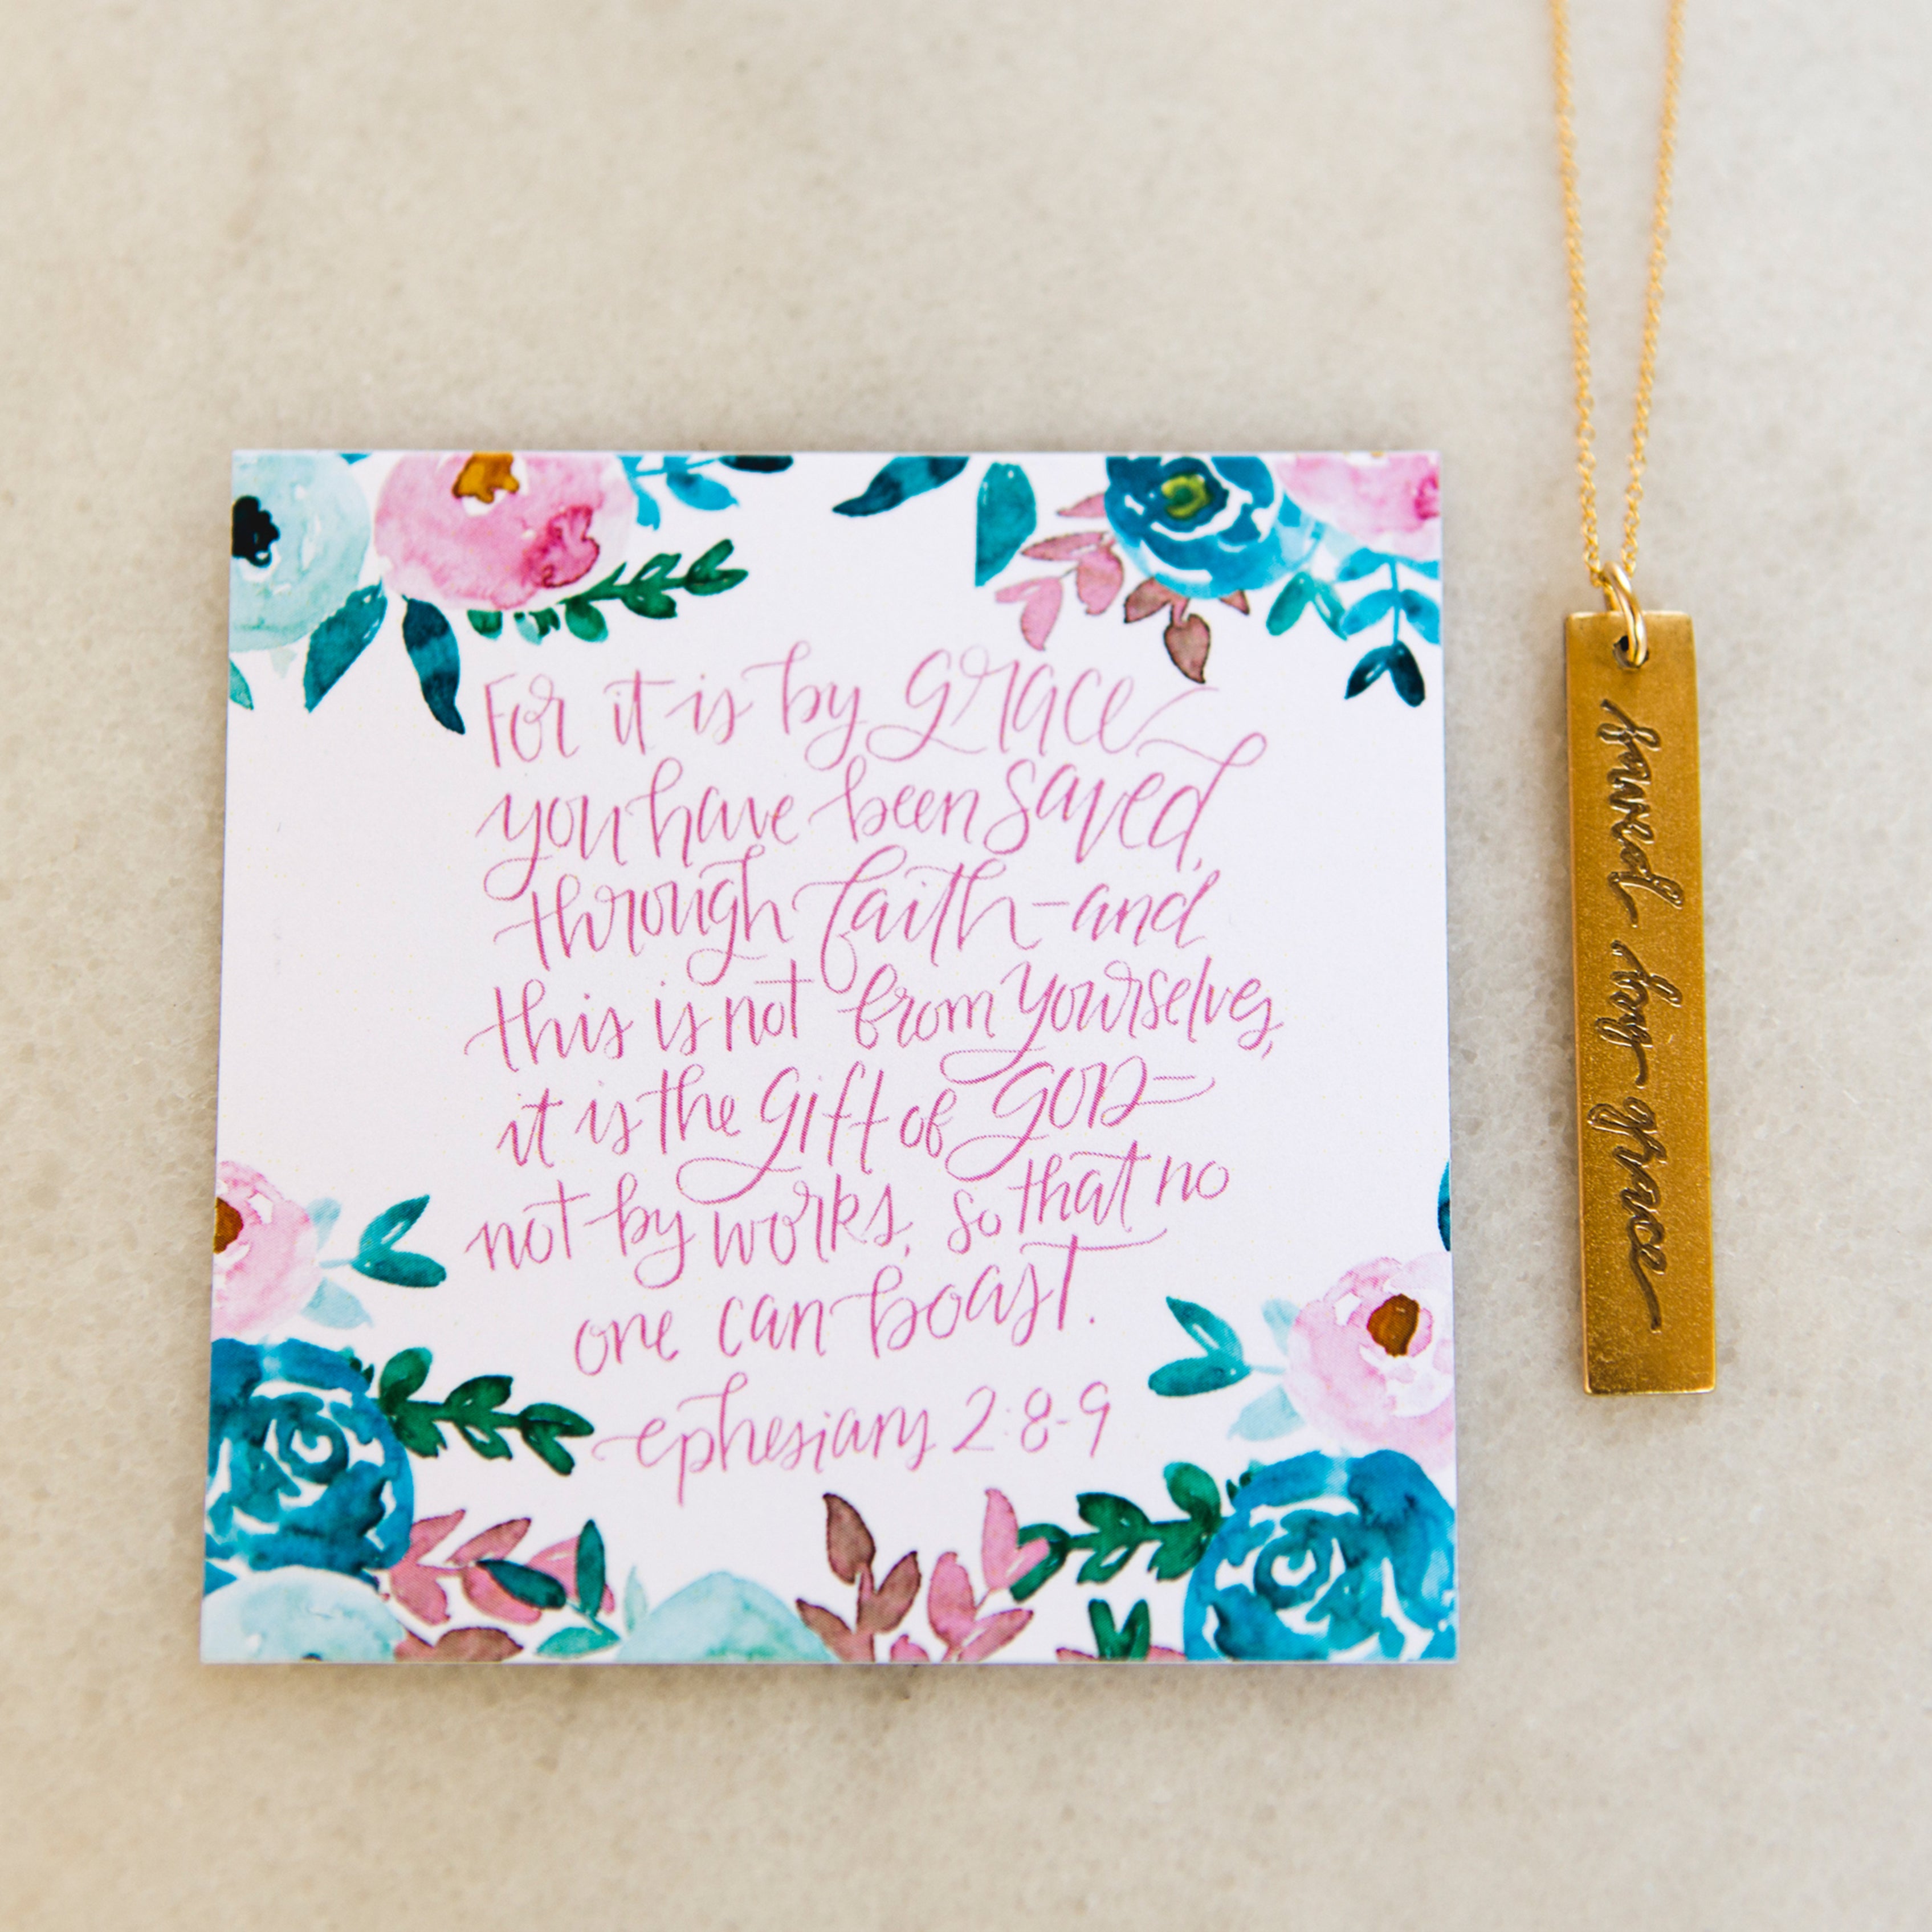 For it is by grace
you have been saved,
through faith-and
this is not from yourselves,
it is the gift of God-
not by works, so that no
one can boast.
ephesians 2:8-9
saved by grace